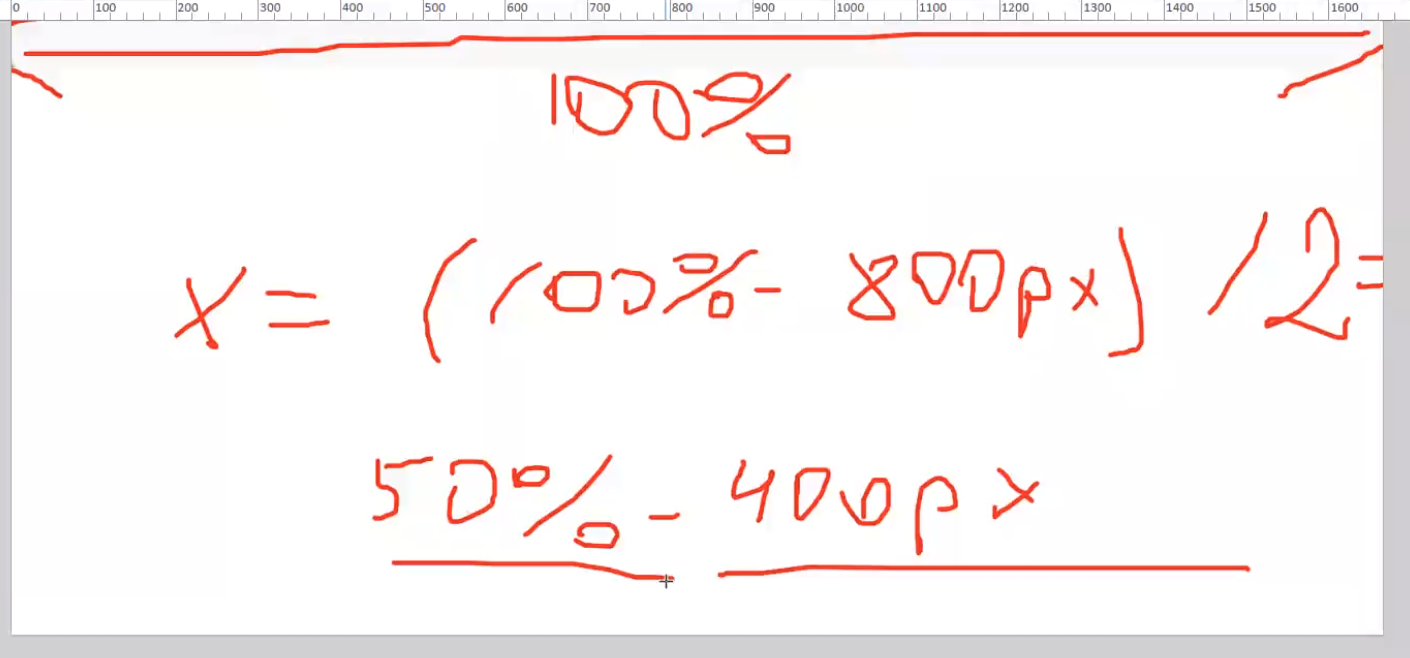 0 100 200 300 400 500 600 700 800 900 1000 1100 1200 1300 1400 1500 1600
100%
x = (100% - 800px) / 2 =
50% - 400px